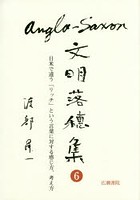 Anglo-Saxon
文明落穂集
⑥
日米で違う「リッチ」という言葉に対する感じ方、考え方
渡部昇一
広瀬書院